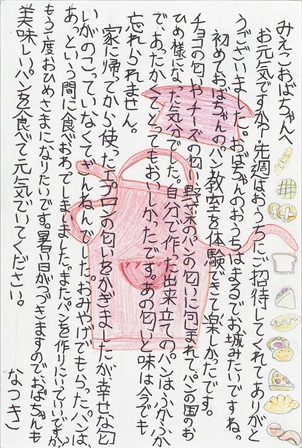 みえこおばちゃんへ
お元気ですか?先週はおうちにご招待してくれてありがと
うございました。おばちゃんのおうちはまるでお城みたいですね。
初めておばちゃんのパン教室を体験できて楽しかったです。
チョコの匂いやチーズの匂い、野菜のパンの匂いに包まれてパンの国のお
ひめ様になった気分でした。自分で作った出来立てのパンは、ふかふか
であったかくてとってもおいしかったです。あの匂いと味は今でも
忘れられません。
家に帰てから、使ったエプロンの匂いをかぎましたが幸せな匂
いがのこっていなくてざんねんでした。おみやげでもらったパンは、
あっという間に食べおわってしまいました。またパンを作りにいっていいですか。
もう一度おひめさまになりたいです。暑い日がつづきますのでおばちゃんも
美味しいパンを食べて元気でいてください。
なつき